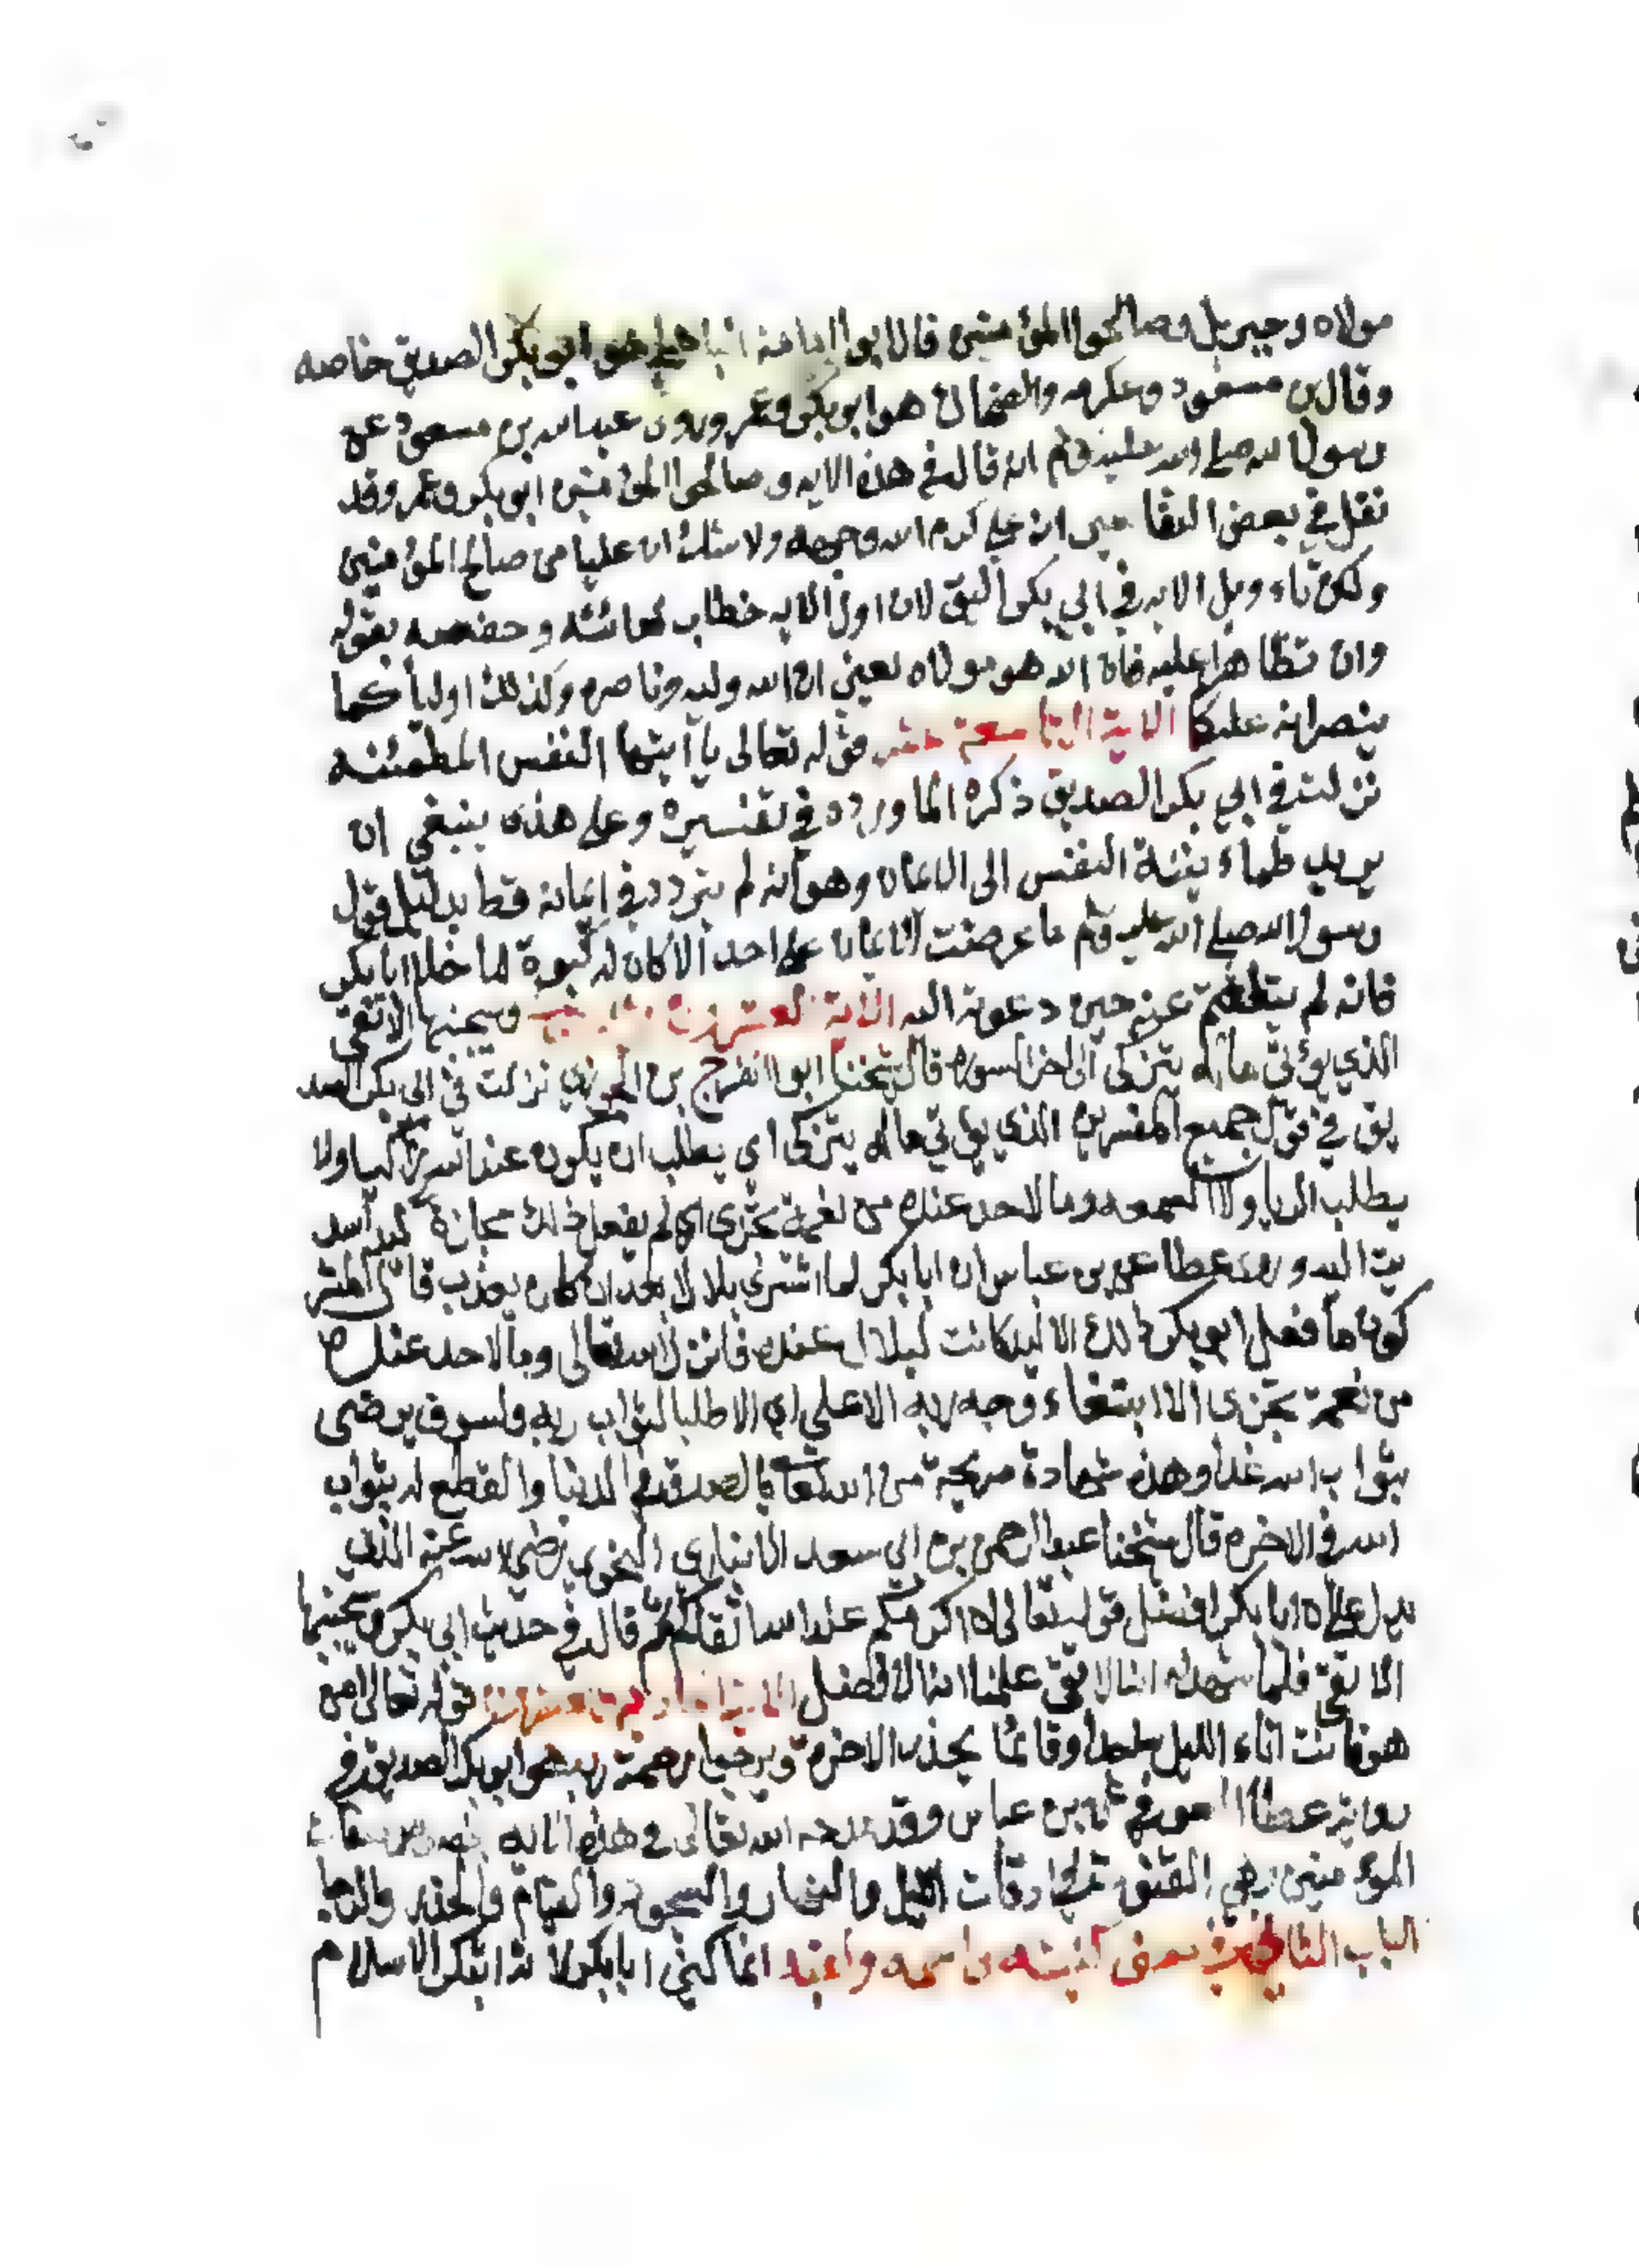 مولاه وجبريل وصالحوا المؤمنين قال ابوا امامة الباهلي هو ابو بكر الصديق خاصه
وقال بن مسعود وعكرمه والضحاك هو ابو بكر وعمر وروى عبد الله بن مسعود عن
رسول الله صلى الله عليه وسلم انه قال في هذه الايه وصالحوا المؤمنين ابو بكر وعمر وقد
نقل في بعض التفاسير انه علي كرم الله وجهه ولا شك ان عليا من صالح المؤمنين
ولكن تاءويل الايه في ابي بكر اليق لان اول الايه خطاب لعائشه وحفصه بقوله
وان تظاهرا عليه فان الله هو مولاه يعني ان الله وليه وناصره وكذلك اولياكما
ينصرانه عليكما الاية التاسعة عشر قوله تعالى يا ايتها النفس المطمئنه
نزلت في ابي بكر الصديق ذكره الماوردي في تفسيره وعلى هذه ينبغي ان
يريد طماءنينة النفس الى الايمان وهو انه لم يتردد في ايمانه قط بدليل قول
رسول الله صلى الله عليه وسلم ما عرضت الايمان على احد الا كان له كبوة ما خلا ابا بكر
فانه لم يتلعثم عنه حين دعوته اليه الاية العشرون وسيجنبها الاتقى
الذي يؤتي ماله يتزكى الى اخر السوره قال شيخنا ابوا الفرج بن الجوزي نزلت في ابي بكر الصد
يق في قول جميع المفسرين الذي يؤتي ماله يتزكى اي يطلب ان يكون عند الله زاكيا ولا
يطلب الريا ولا السمعه وما لاحد عنده من نعمة تجزى اي لم يفعل ذلك مجازة ليد اسد
يت اليه وروى عطا عن بن عباس ان ابا بكر لما اشترى بلالا بعد ان كان يعذب قال المشر
كون ما فعل ابو بكر ذلك الا ليد كانت لبلال عنده فانزل الله تعالى وما لاحد عنده
من نعمة تجزى الا ابتغاء وجه ربه الاعلى اي الا طلبا لثواب ربه ولسوف يرضى
بثواب الله غدا وهذه شهادة صريحة من الله تعا بالصدق في الدنيا والقطع له بثواب
الله في الاخره قال شيخنا عبد الرحمن بن ابي سعد الانباري النحوي رضي الله عنه الذي
يدل على ان ابا بكر افضل قوله تعالى ان اكرمكم عند الله اتقاكم ثم قال في حديث ابي بكر وسيجنبها
الاتقى فلما شهد له انه الاتقى علمنا انه الافضل الاية الحادية والعشرون قوله تعالى امن
هو قانت اناء الليل ساجدا وقائما يحذر الاخرة ويرجوا رحمة ربه هو ابو بكر الصديق في
رواية عطا العوفي عن بن عباس وقد مدحه الله تعالى في هذه الايه بصفات
المؤمنين وهي القنوت في اوقات الليل والنهار والسجود والقيام والحذر والرجا
الباب الثاني في معرفة كنيته واسمه ولقبه انما كني ابا بكر لانه ابتكر الاسلام